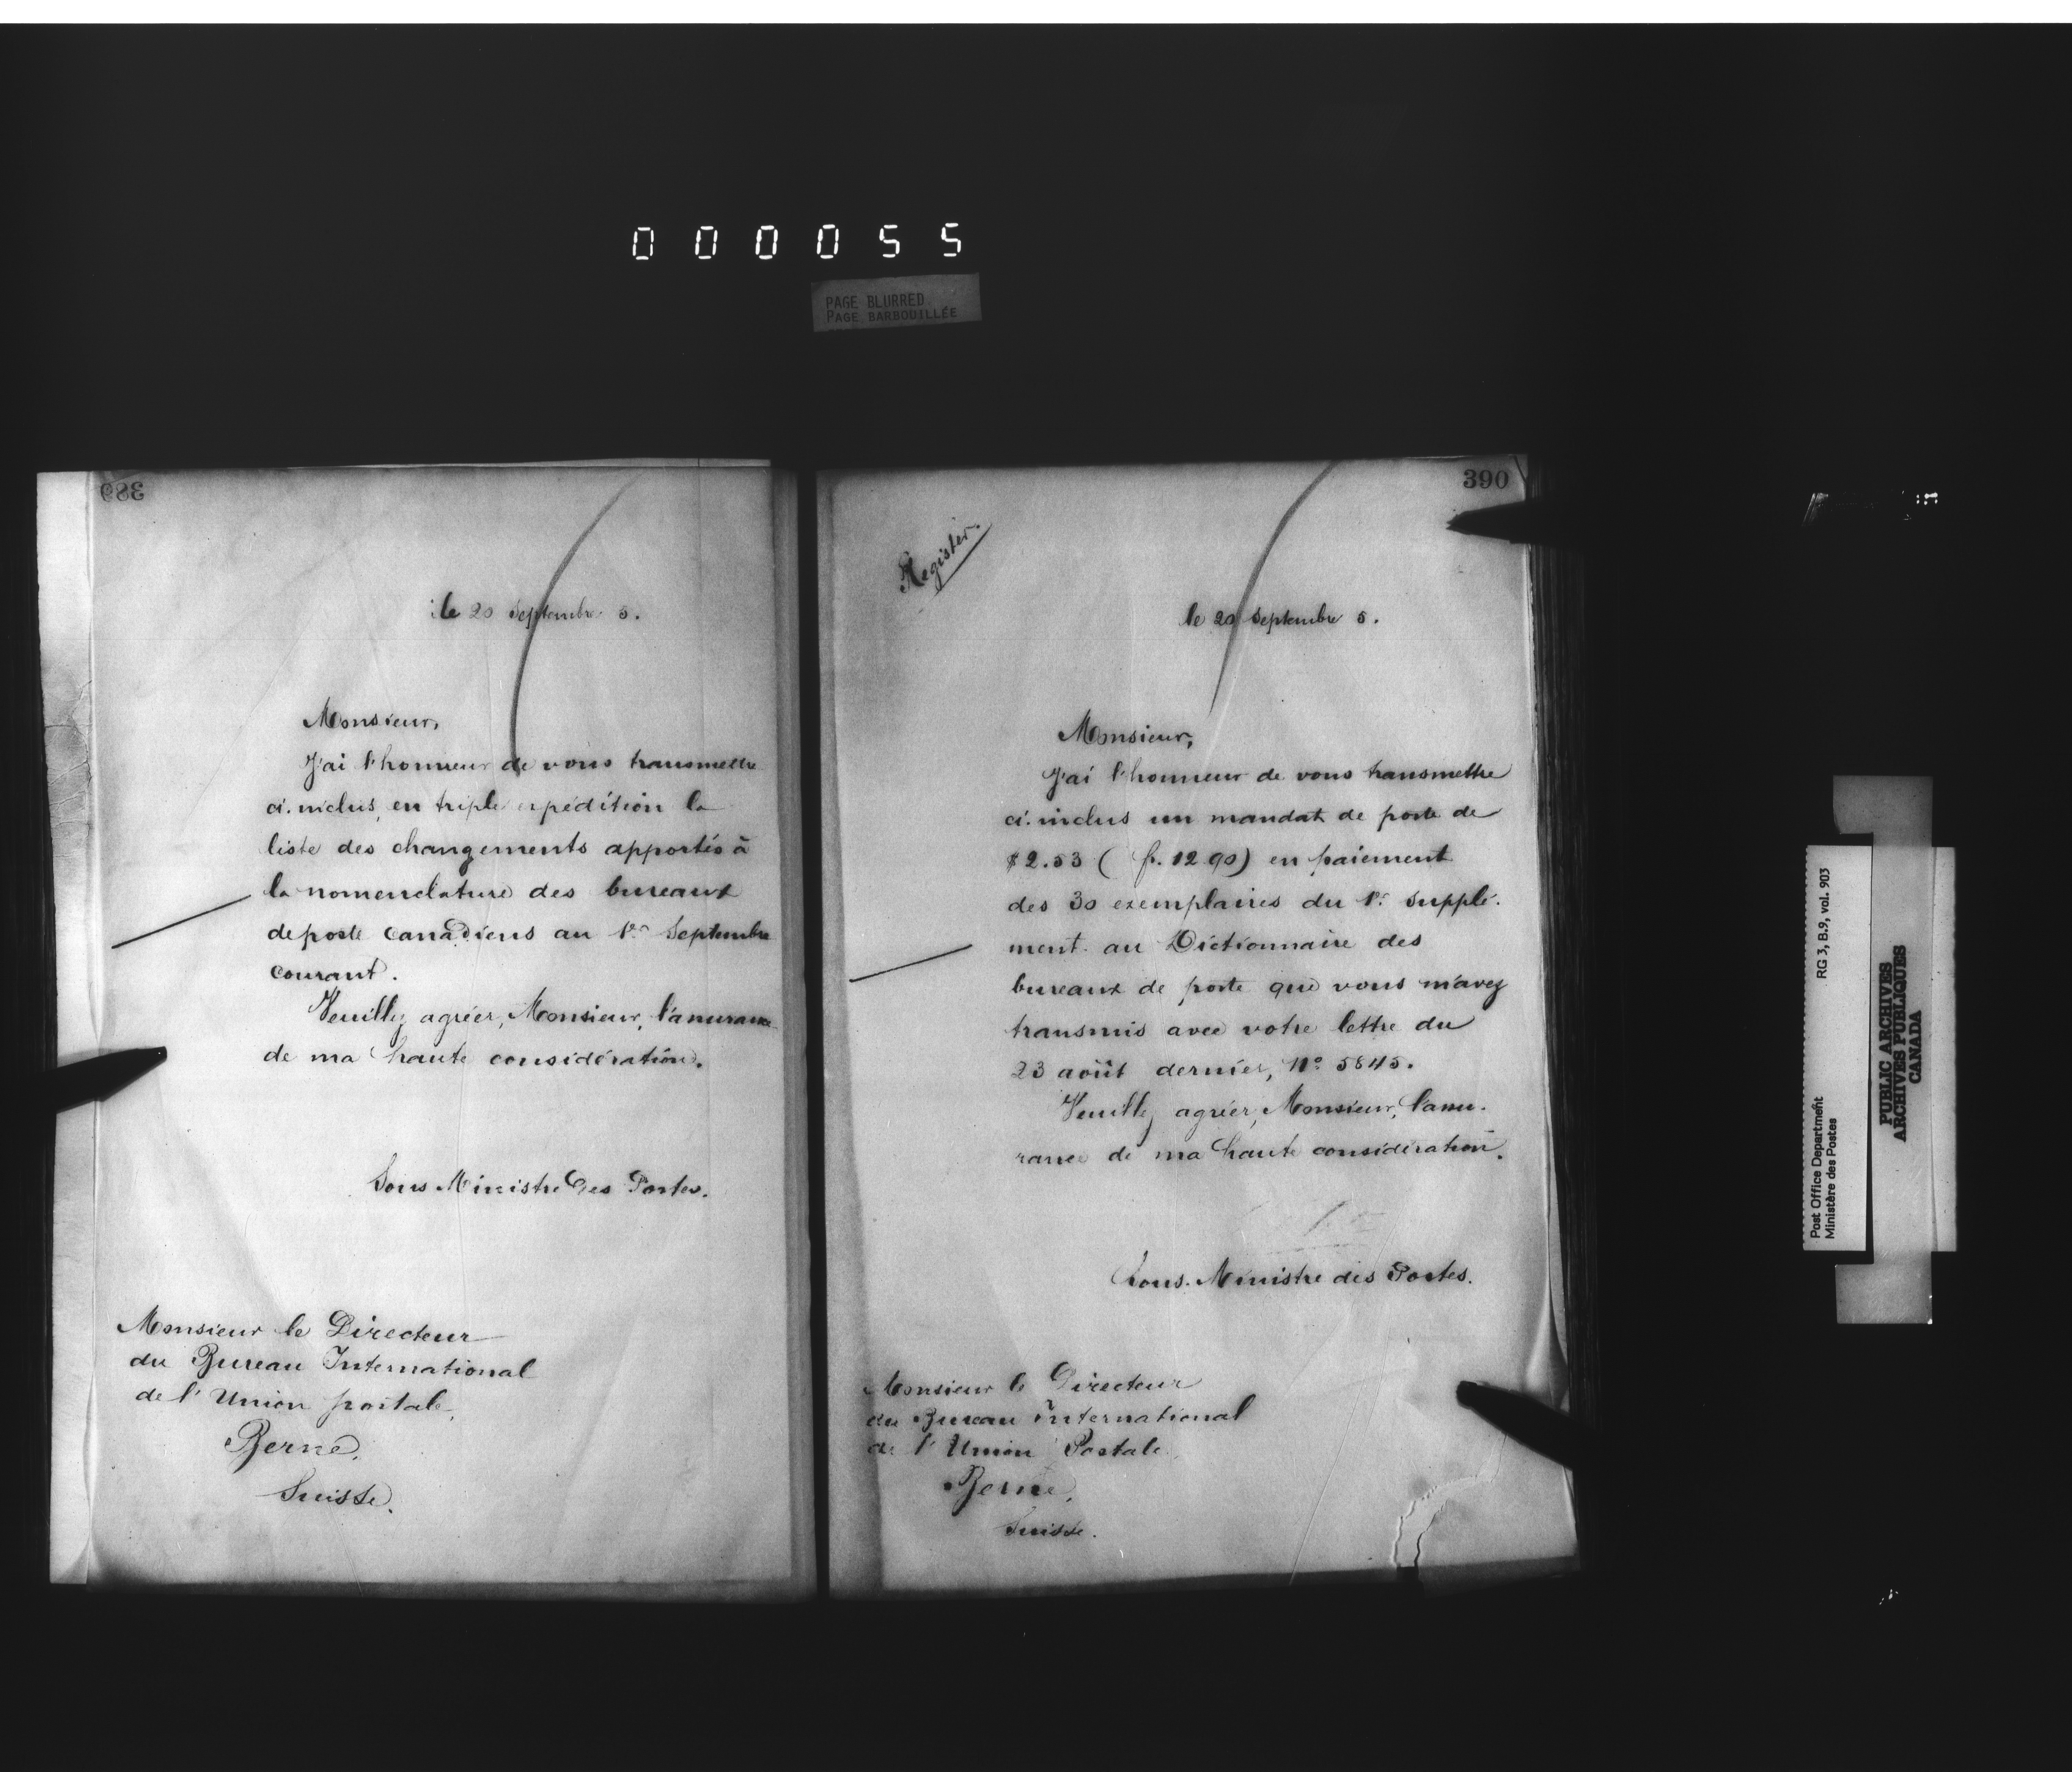 000055
PAGE BLURRED
PAGE BARBOUILLÉE
389
le 20 Septembre 5.
Monsieur,
J'ai l'honneur de vous transmettre
ci-inclus, en triple expédition la
liste des changements apportés à
la nomenclature des bureaux
de poste Canadiens au 1er Septembre
courant.
Veuillez agréer, Monsieur, l'assurance
de ma haute considération.
Sous Ministre des Postes.
Monsieur le Directeur
du Bureau International
de l'Union postale,
Berne,
Suisse.
390
Register.
le 20 Septembre 5.
Monsieur,
J'ai l'honneur de vous transmettre
ci-inclus un mandat de poste de
$2.53 ( fr. 12.90) en paiement
des 30 exemplaires du 1er Supplé-
ment au Dictionnaire des
bureaux de poste que vous m'avez
transmis avec votre lettre du
23 août dernier, No 5845.
Veuillez agréer, Monsieur, l'assu-
rance de ma haute considération.
Sous-Ministre des Postes.
Monsieur le Directeur
du Bureau International
de l'Union Postale,
Berne,
Suisse.
Post Office Department RG 3, B.9, vol. 903
Ministère des Postes
PUBLIC ARCHIVES
ARCHIVES PUBLIQUES
CANADA